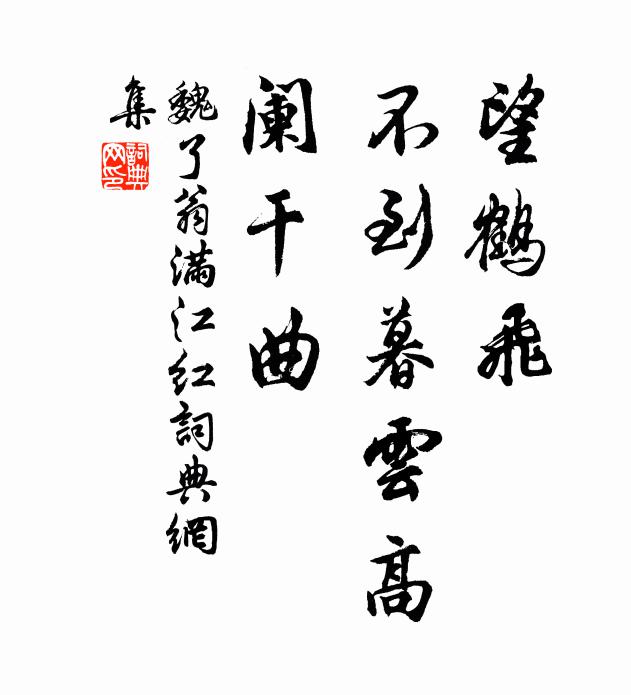 望鹤飛
不到暮雲高
阑干曲
魏了翁滿江红詞典網
集
詞典
网印